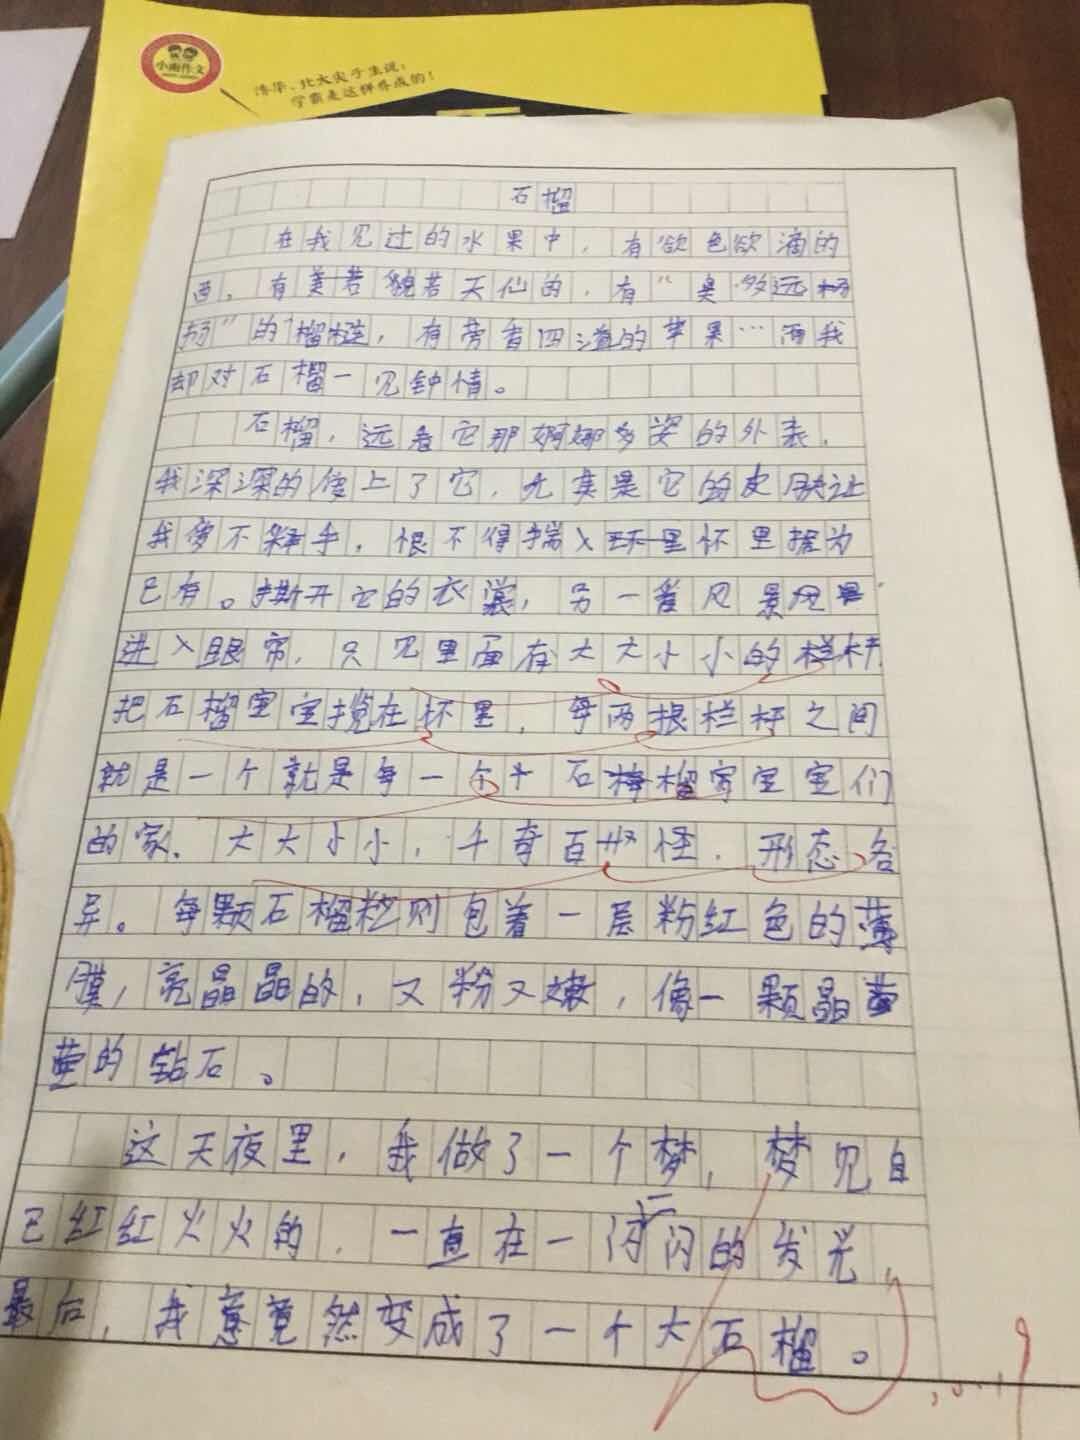 小雨作文
清华、北大尖子生说:
学霸是这样养成的!
石榴
在我见过的水果中,有欲色欲滴的
西,有美若貌若天仙的,有“臭够远扬
扬”的榴梿,有旁香四溢的苹果…而我
却对石榴一见钟情。
石榴,远看它那婀娜多姿的外表,
我深深的爱上了它,尤其是它的皮肤让
我爱不释手,恨不得揣入环里怀里据为
己有。撕开它的衣裳,另一番风景风景
进入眼帘,只见里面有大大小小的栏杆
把石榴宝宝揽在怀里,每两根栏杆之间
就是一个就是每一个个石榴宝宝们
的家,大大小小,千奇百怪,形态各
异。每颗石榴粒则包着一层粉红色的薄
膜,亮晶晶的,又粉又嫩,像一颗晶莹
莹的钻石。
这天夜里,我做了一个梦,梦见自
己红红火火的,一直在一闪一闪的发光,
最后,我意竟然变成了一个大石榴。